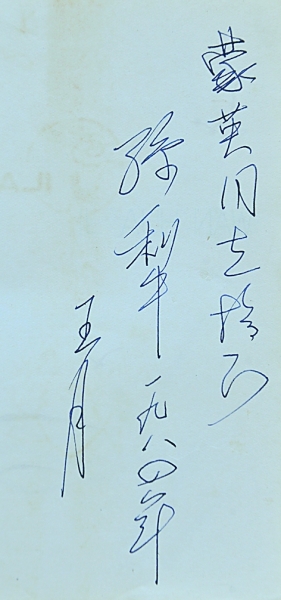 蒙英同志指正
孙犁 一九八四年
五月